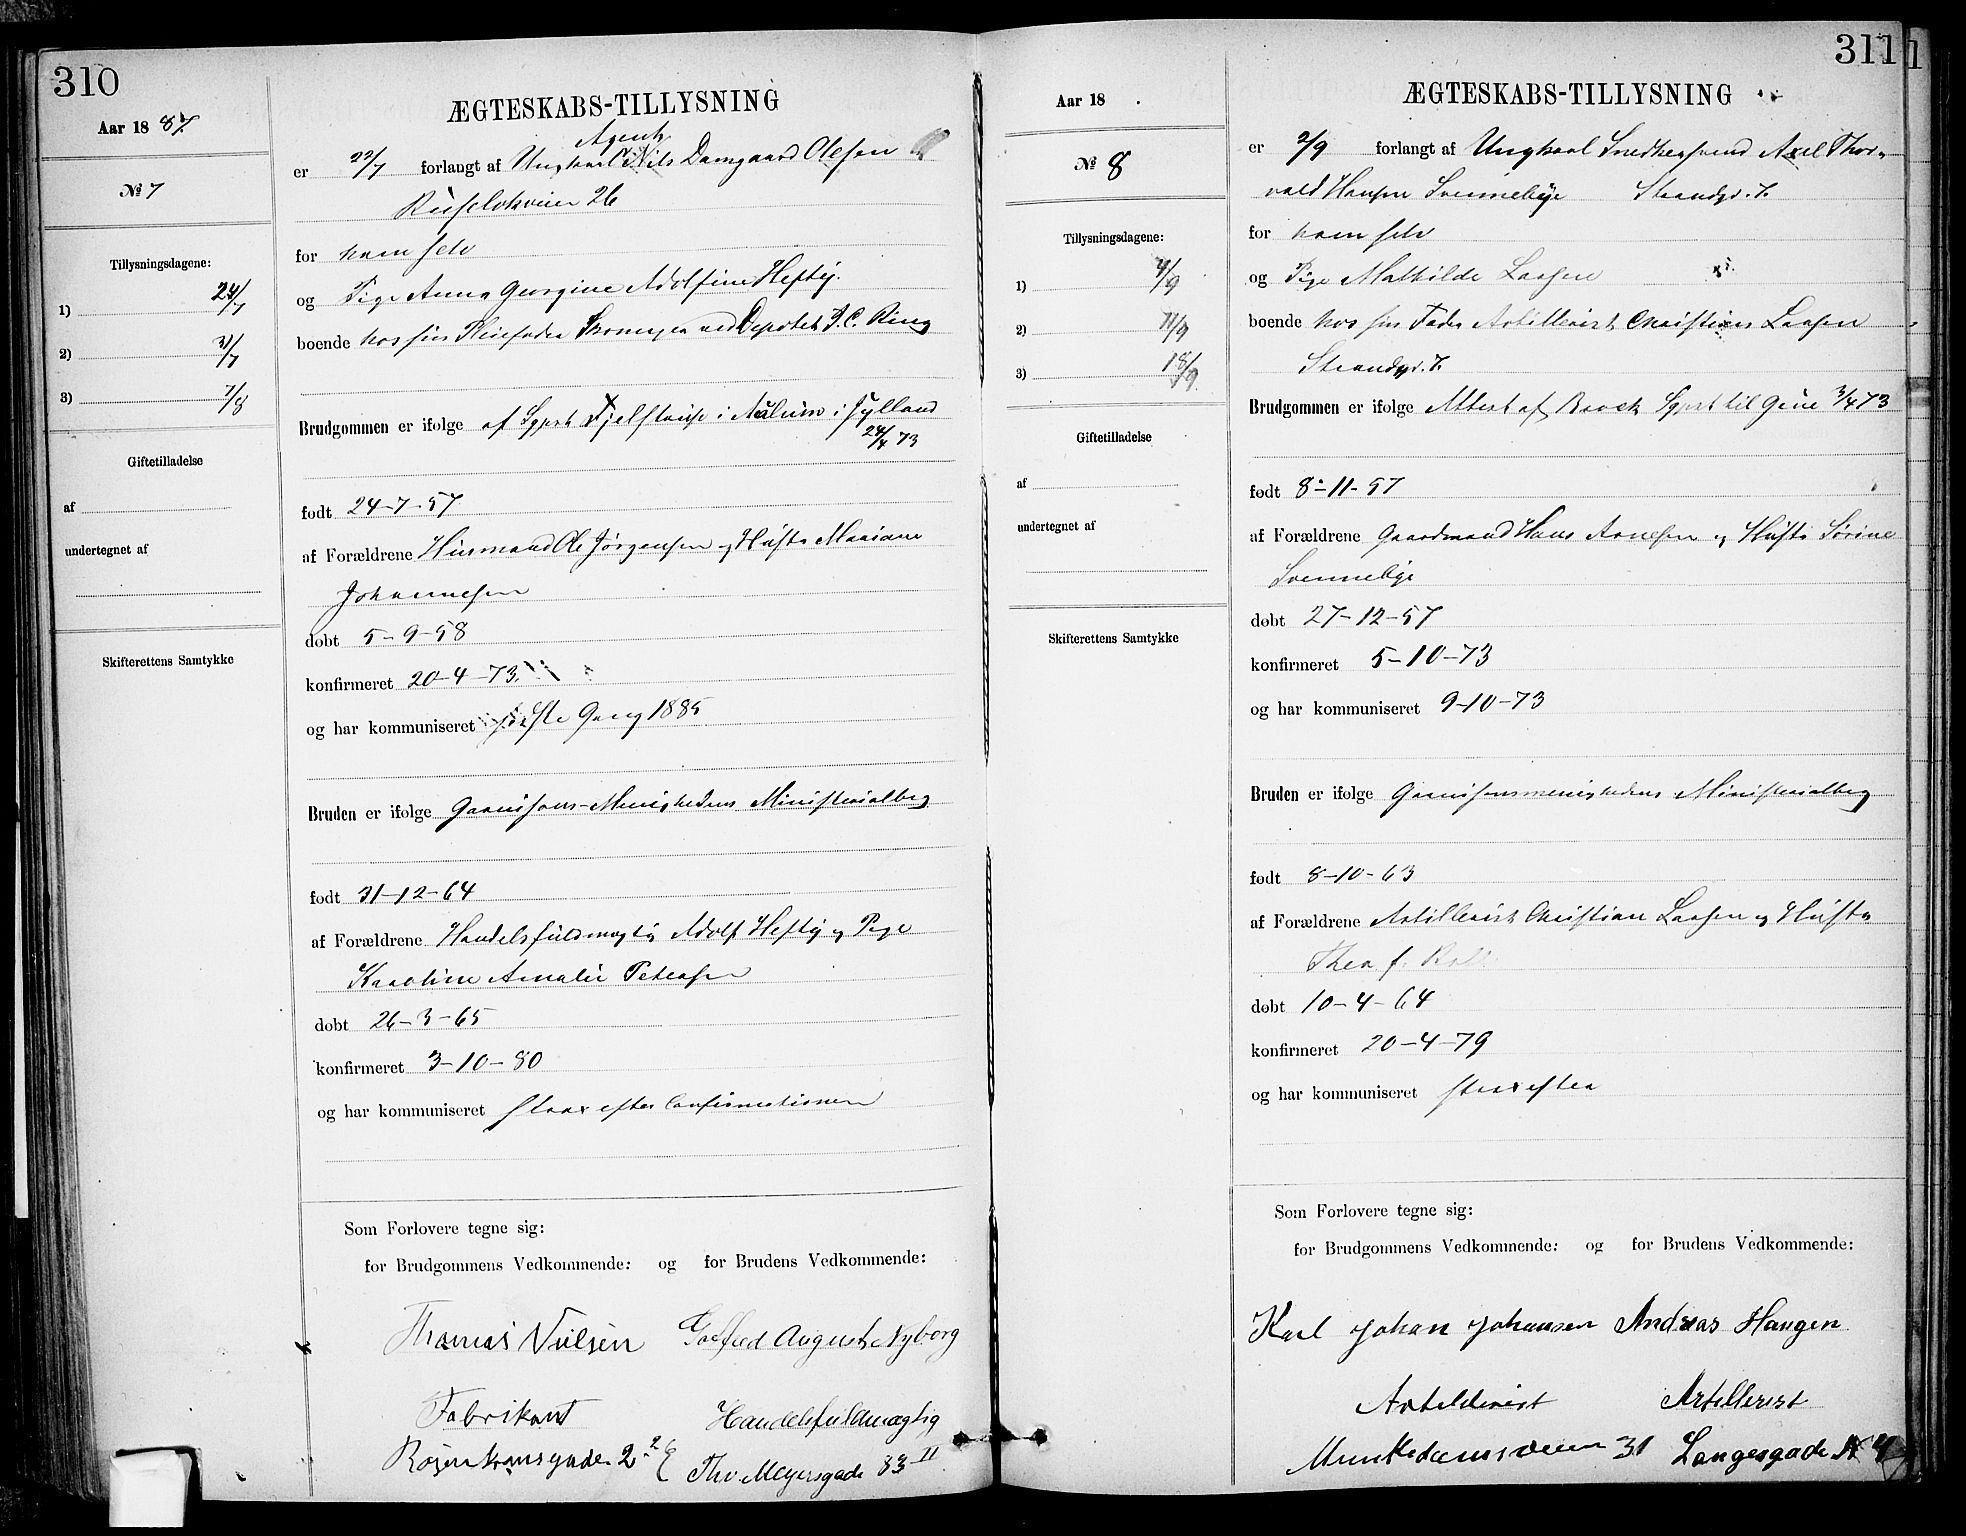 310
Aar 1887.
№ 7
Tillysningsdagene:
1) 24/7
2) 31/7
3) 7/8
Giftetilladelse
af
undertegnet af
Skifterettens Samtykke
ÆGTESKABS-TILLYSNING
Agent
er 22/7 forlangt af Ungkarl Nils Damgaard Olesen
Ruseløkveien 26
for ham selv
og Pige Anna Georgine Adolfine Hefty.
boende hos sin Pleiefader ved Depotet P. C. Ring
Brudgommen er ifølge af Sgpst Fjelstrup i Aulum i Jylland
24/4 73
født 24-7-57
af Forældrene Husmand Ole Jørgensen og Hustr Mariane
Johannesen
døbt 5-9-58
konfirmeret 20-4-73.
og har kommuniseret sidste Gang 1885
Bruden er ifølge Garnisons-Menighedens Ministerialbog
født 31-12-64
af Forældrene Handelsfuldmægtig Adolf Hefty og Pige
Karoline Amalie Petersen
døbt 26-3-65
konfirmeret 3-10-80
og har kommuniseret strax efter Confirmationen
Som Forlovere tegne sig:
for Brudgommens Vedkommende: og for Brudens Vedkommende:
Thomas Nielsen Gotfred August Nyborg
Fabrikant Handelsfuldmægtig
Rosenkransgade 2 Thv. Meyersgade 33 II
311
Aar 18
№ 8
Tillysningsdagene:
1) 4/9
2) 11/9
3) 18/9
Giftetilladelse
af
undertegnet af
Skifterettens Samtykke
ÆGTESKABS-TILLYSNING
er 2/9 forlangt af Ungkarl Snedkersvend Axel Thor-
vald Hansen Svennebye Strandgd. 7.
for ham selv
og Pige Mathilde Larsen
boende hos sin Fader Artillerist Christian Larsen
Strandgd. 7.
Brudgommen er ifølge Attest af Sgpst til 3/4 73
født 8-11-57
af Forældrene Gaardmand Hans Arnesen og Hustr Sørine
Svennebye
døbt 27-12-57
konfirmeret 5-10-73
og har kommuniseret 9-10-73
Bruden er ifølge Garnisonsmenighedens Ministerialbog
født 8-10-63
af Forældrene Artillerist Christian Larsen og Hustr
Thea f.
døbt 10-4-64
konfirmeret 20-4-79
og har kommuniseret strax efter
Som Forlovere tegne sig:
for Brudgommens Vedkommende: og for Brudens Vedkommende:
Karl Johan Johansen Andreas Haugen
Artillerist Artillerist
Munkedamsveien 31 Langesgade № 4